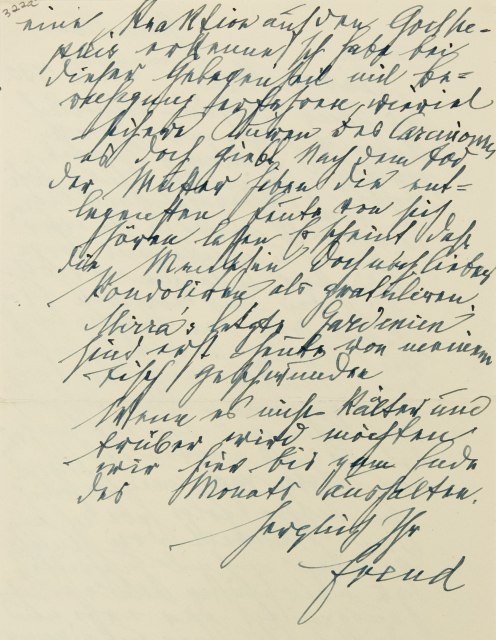 3222
eine Reaktion auf den Goethe-
preis erkenne. Ich habe bei
dieser Gelegenheit mit Be-
erfahren, wieviel
Kuren des Carcinoms
es doch giebt. Nach dem Tod
der Mutter haben die ent-
legensten Leute von sich
hören lassen. Es scheint daß
die Menschen doch noch lieber
kondoliren als gratuliren.
Mirra's letzte Gardenien
sind erst heute von meinem
Tisch geschwunden
Wenn es nicht kälter und
trüber wird möchten
wir hier bis zum Ende
des Monats aushalten.
Herzlich Ihr
Freud